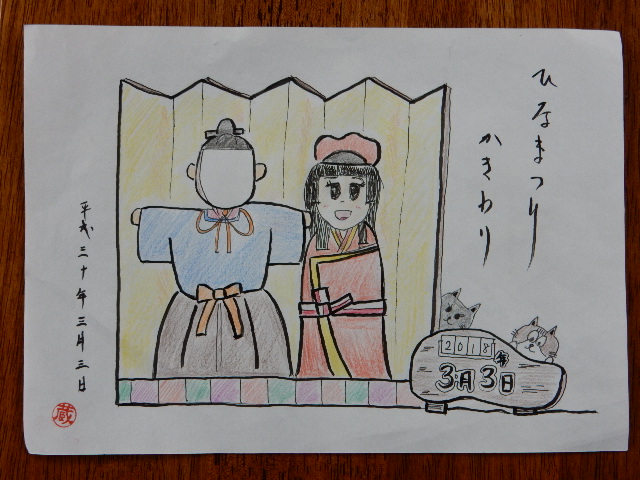 ひなまつり
かきわり
平成三十年三月三日
蔵
2018年
3月3日